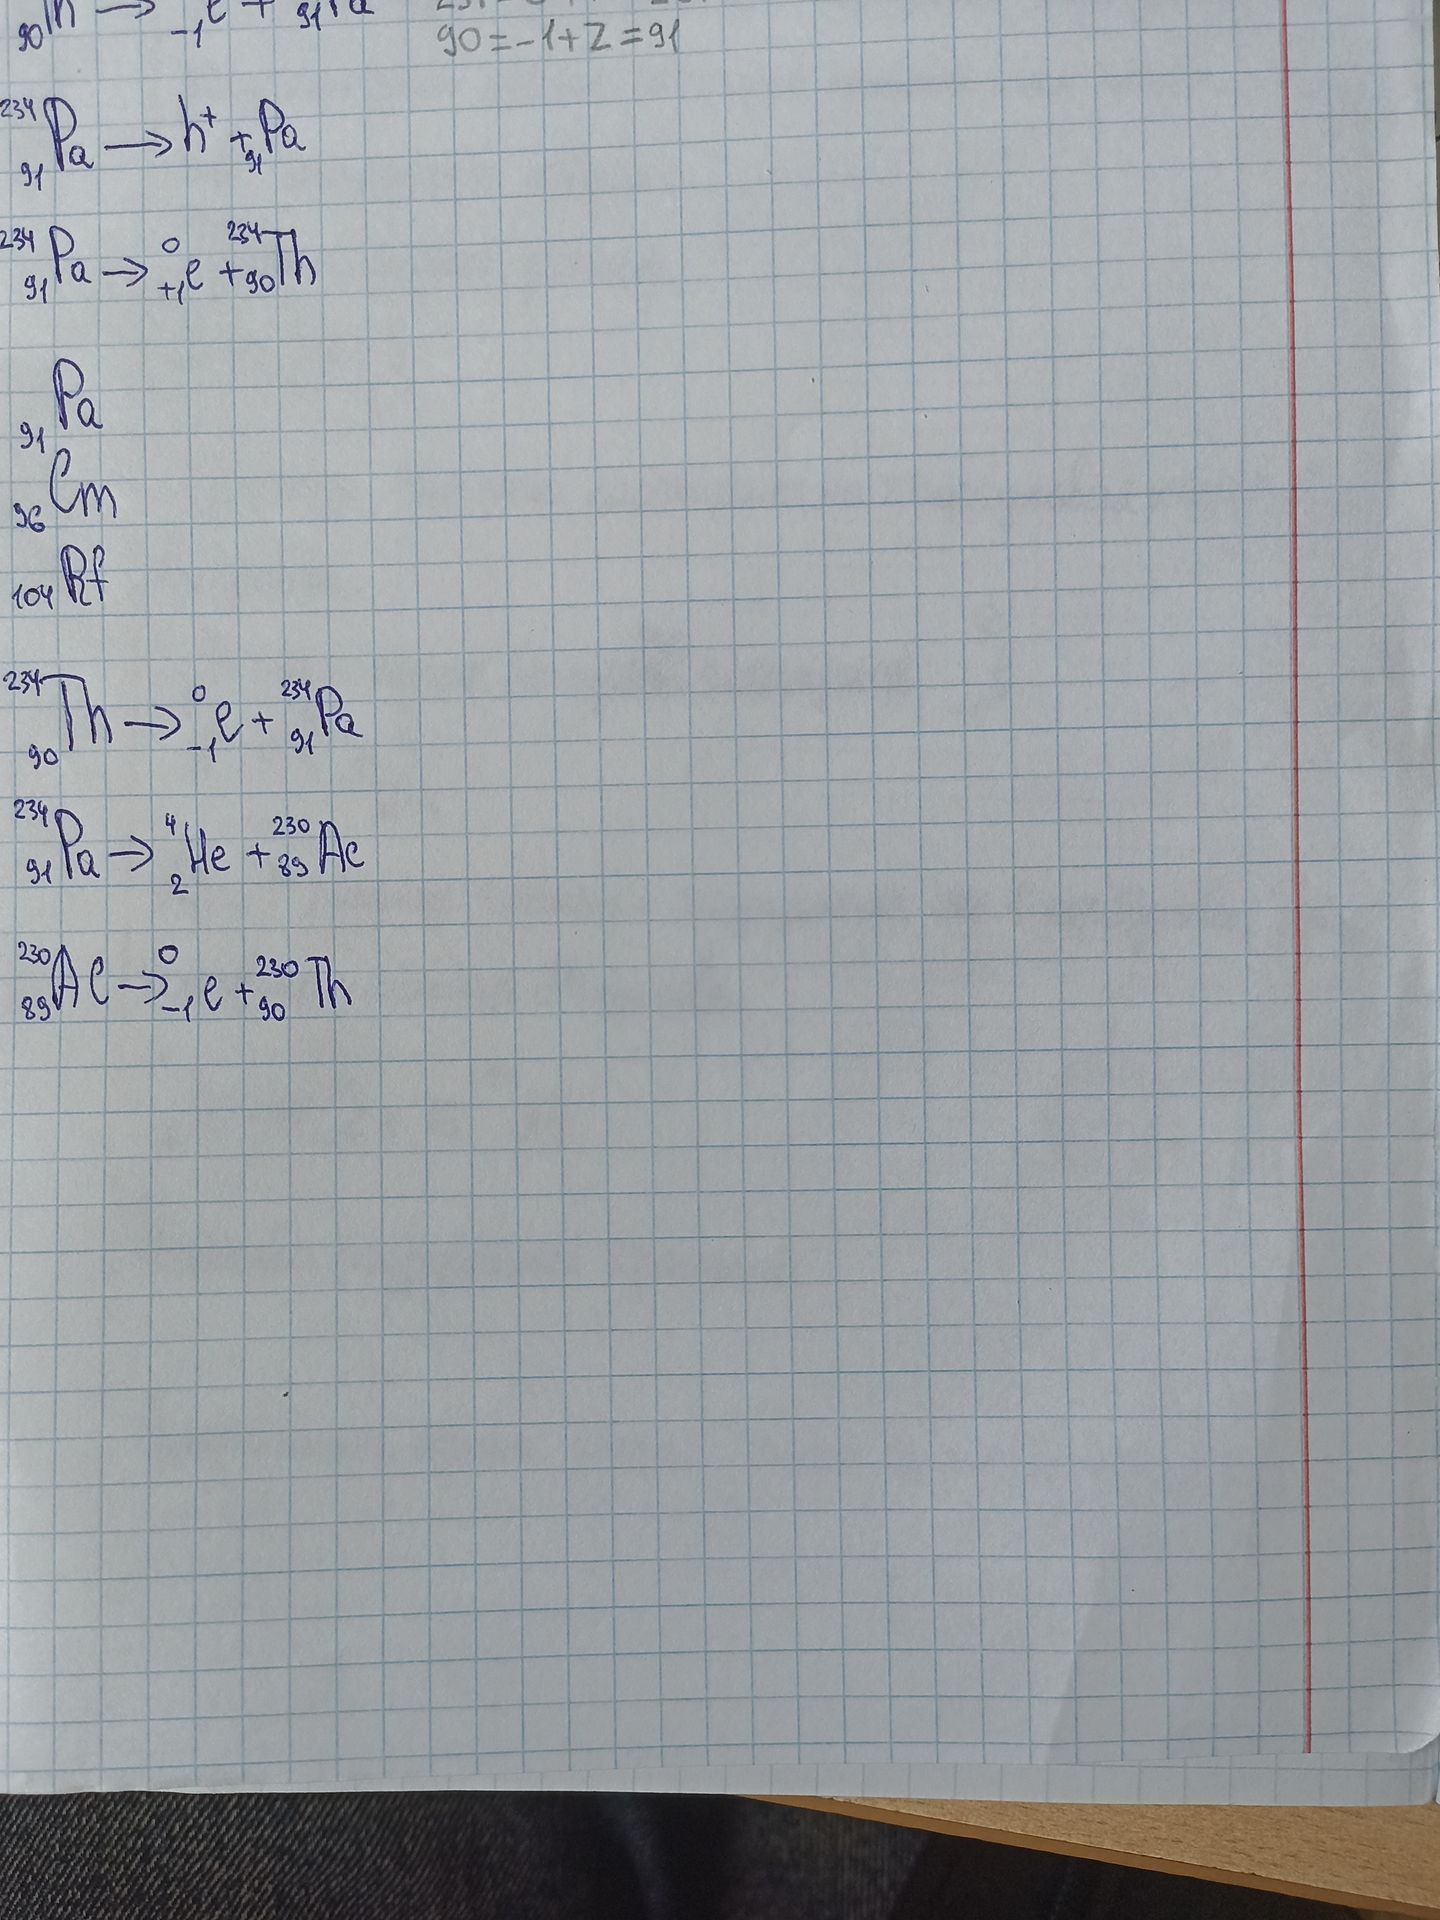 ₉₀Th → ₋₁e + ₉₁Pa
90=-1+Z=91
²³⁴₉₁Pa → h⁺ + ₉₁Pa
²³⁴₉₁Pa → ⁰₊₁e + ²³⁴₉₀Th
₉₁Pa
₉₆Cm
₁₀₄Rf
²³⁴₉₀Th → ⁰₋₁e + ²³⁴₉₁Pa
²³⁴₉₁Pa → ⁴₂He + ²³⁰₈₉Ac
²³⁰₈₉Ac → ⁰₋₁e + ²³⁰₉₀Th